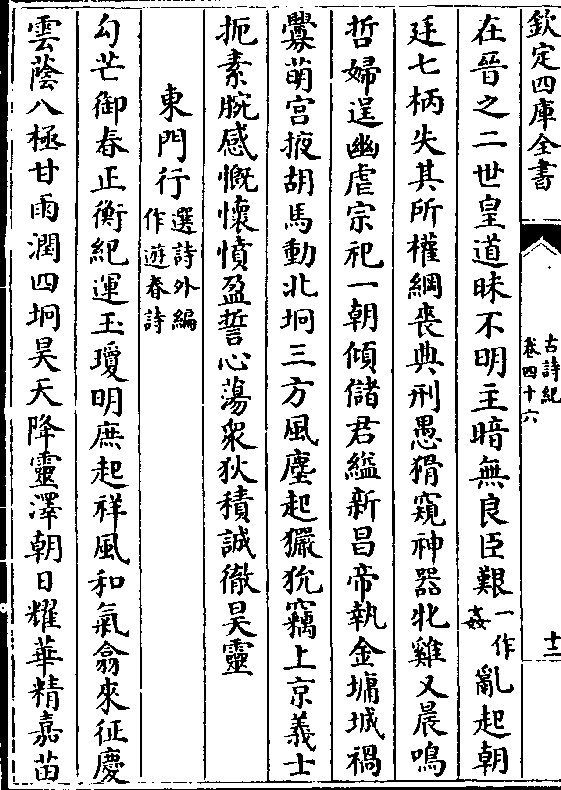 欽定四庫全書
古詩紀
卷四十六
十二
在晉之二世皇道昧不明主暗無良臣艱一作姦亂起朝
廷七柄失其所權綱喪典刑愚猾窺神器牝雞又晨鳴
哲婦逞幽虐宗祀一朝傾儲君縊新昌帝執金墉城禍
釁萌宮掖胡馬動北坰三方風塵起玁狁竊上京義士
扼素腕感慨懷憤盈誓心蕩衆狄積誠徹昊靈
東門行選詩外編作遊春詩
勾芒御春正衡紀運玉瓊明庶起祥風和氣翕來征慶
雲蔭八極甘雨潤四坰昊天降靈澤朝日耀華精嘉苗